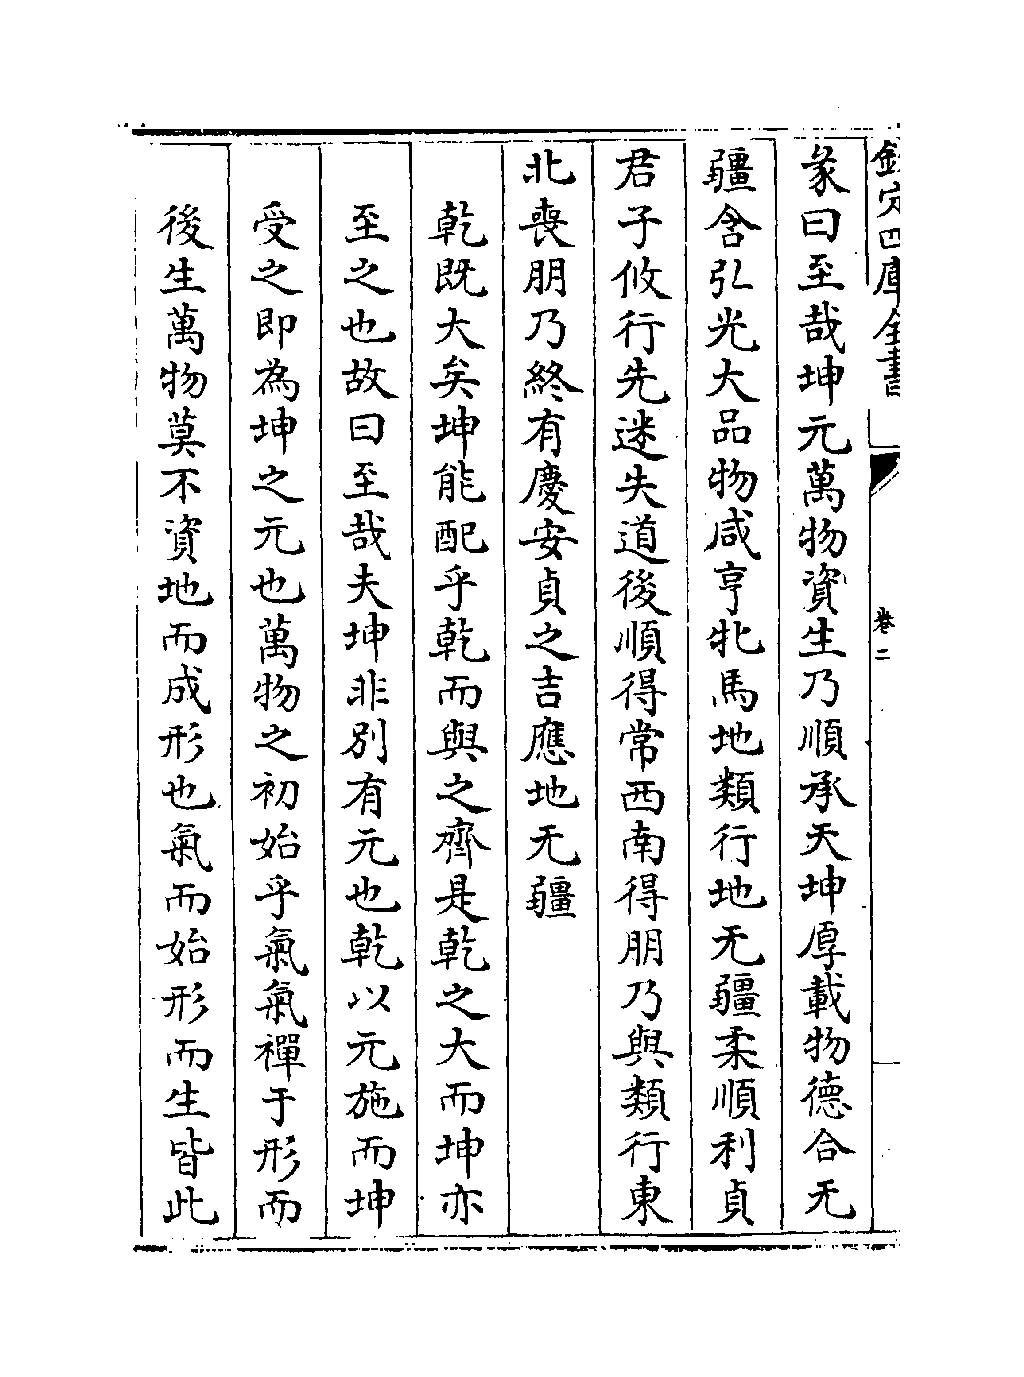 欽定四庫全書
卷二
彖曰至哉坤元萬物資生乃順承天坤厚載物德合无
疆含弘光大品物咸亨牝馬地類行地无疆柔順利貞
君子攸行先迷失道後順得常西南得朋乃與類行東
北喪朋乃終有慶安貞之吉應地无疆
乾既大矣坤能配乎乾而與之齊是乾之大而坤亦
至之也故曰至哉夫坤非別有元也乾以元施而坤
受之即為坤之元也萬物之初始乎氣氣禪于形而
後生萬物莫不資地而成形也氣而始形而生皆此